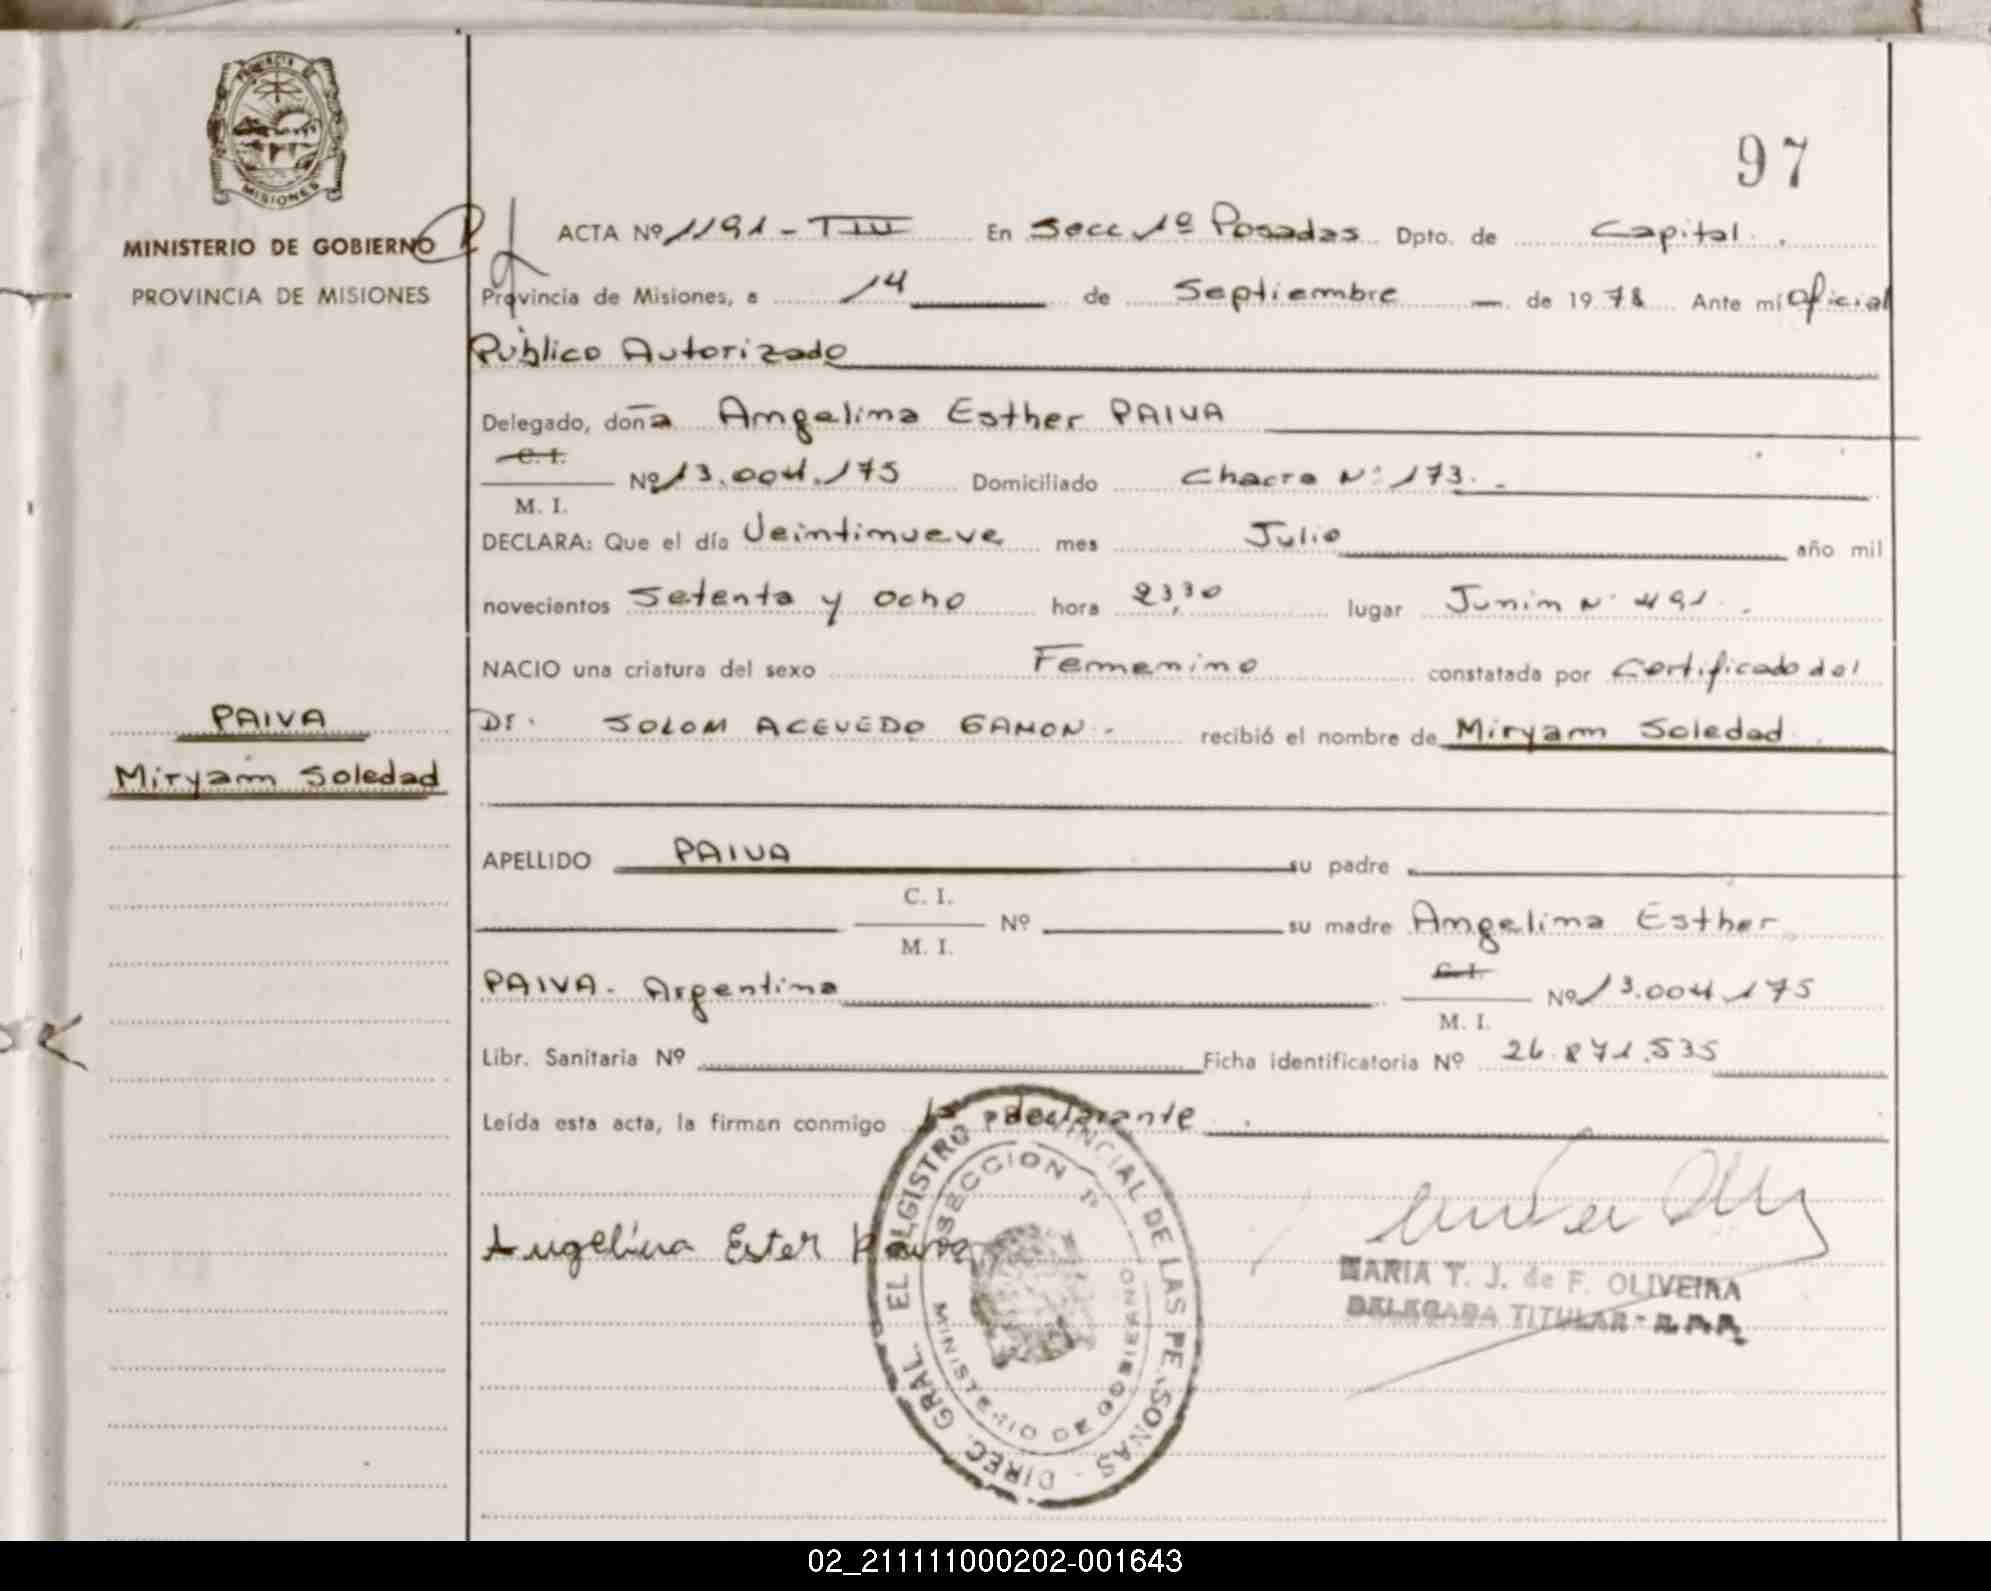 PROVINCIA DE
MISIONES
MINISTERIO DE GOBIERNO
PROVINCIA DE MISIONES
97
ACTA Nº 1191 - T III En Secc 1º Posadas Dpto. de Capital.
Provincia de Misiones, a 14 de Septiembre de 1978 Ante mí Oficial
Público Autorizado
Delegado, doña Angelina Esther PAIVA
C. I.
M. I.
Nº 13.004.175 Domiciliado Chacra Nº 173.
DECLARA: Que el día Veintinueve mes Julio año mil
novecientos Setenta y ocho hora 23,30 lugar Junin Nº 491.
NACIO una criatura del sexo Femenino constatada por Certificado del
Dr. SOLOM ACEVEDO GAMON.- recibió el nombre de Miryam Soledad
PAIVA
Miryam Soledad
APELLIDO PAIVA su padre
C. I.
M. I.
Nº su madre Angelina Esther
PAIVA. Argentina C. I.
M. I.
Nº 13.004.175
Libr. Sanitaria Nº Ficha identificatoria Nº 26.871.535
Leída esta acta, la firman conmigo la declarante.
Angelina Ester Paiva
DIREC. GRAL. EL REGISTRO PROVINCIAL DE LAS PERSONAS
SECCION 1ª
MINISTERIO DE GOBIERNO
MARIA T. J. de F. OLIVEIRA
DELEGADA TITULAR
02_211111000202-001643